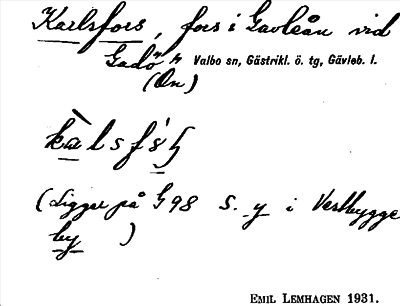 Karlsfors, fors i Gavleån vid
"Gadö" Valbo sn, Gästrikl. ö. tg, Gävleb. l.
(Ön)
(Ligger på G 98 S. y i Vestbygge
by )
EMIL LEMHAGEN 1931.